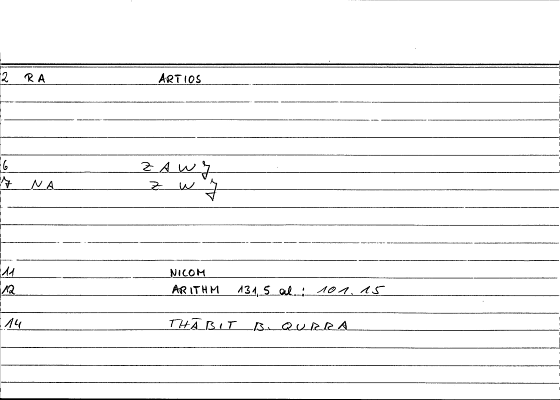 2 RA ARTIOS
6 ZAWJ
7 NA ZWJ
11 NICOM
12 ARITHM 131,5 al.: 101.15
14 THĀBIT B. QURRA